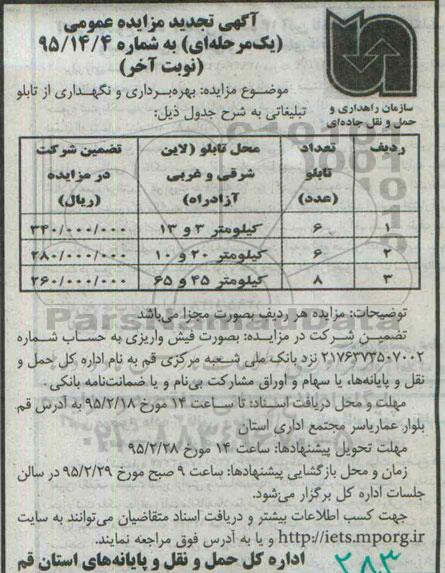 آگهی تجدید مزایده عمومی
(یک‌مرحله‌ای) به شماره ۹۵/۱۴/۴
(نوبت آخر)
سازمان راهداری و
حمل و نقل جاده‌ای
موضوع مزایده: بهره‌برداری و نگهداری از تابلو
تبلیغاتی به شرح جدول ذیل:
ردیف تعداد تابلو (عدد) محل تابلو (لاین شرقی و غربی آزادراه) تضمین شرکت در مزایده (ریال)
۱ ۶ کیلومتر ۳ و ۱۳ ۳۴۰/۰۰۰/۰۰۰
۲ ۶ کیلومتر ۲۰ و ۱۰ ۲۸۰/۰۰۰/۰۰۰
۳ ۸ کیلومتر ۴۵ و ۶۵ ۲۶۰/۰۰۰/۰۰۰
توضیحات: مزایده هر ردیف بصورت مجزا می‌باشد
تضمین شرکت در مزایده: بصورت فیش واریزی به حساب شماره
۲۱۷۶۳۷۳۵۰۷۰۰۲ نزد بانک ملی شعبه مرکزی قم به نام اداره کل حمل و
نقل و پایانه‌ها، یا سهام و اوراق مشارکت بی‌نام و یا ضمانت‌نامه بانکی.
مهلت و محل دریافت اسناد: تا ساعت ۱۴ مورخ ۹۵/۲/۱۸ به آدرس قم.
بلوار عماریاسر مجتمع اداری استان
مهلت تحویل پیشنهادها: ساعت ۱۴ مورخ ۹۵/۲/۲۸
زمان و محل بازگشایی پیشنهادها: ساعت ۹ صبح مورخ ۹۵/۲/۲۹ در سالن
جلسات اداره کل برگزار می‌شود.
جهت کسب اطلاعات بیشتر و دریافت اسناد متقاضیان می‌توانند به سایت
http://iets.mporg.ir و یا به آدرس فوق مراجعه نمایند.
اداره کل حمل و نقل و پایانه‌های استان قم
۲۸۳
ParsNamadData